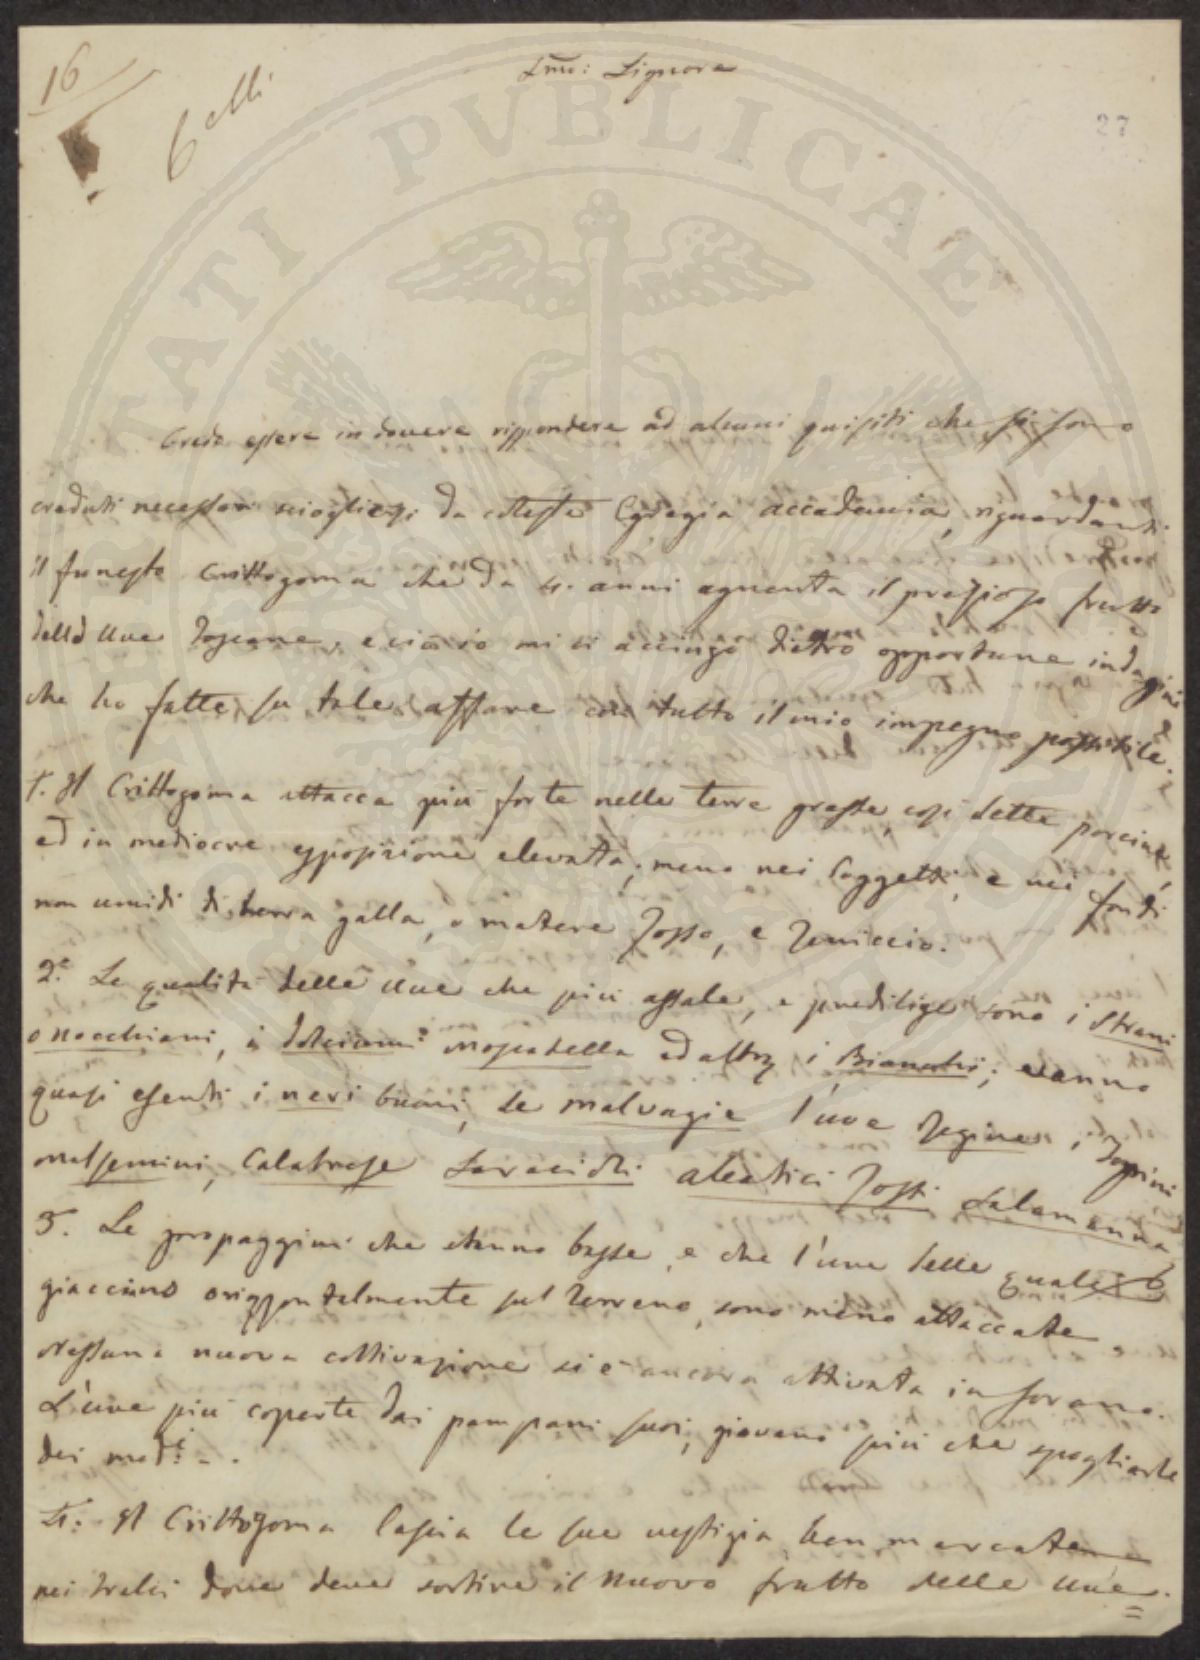 16
27
Galli
Illmo: Signore
Credo essere in dovere rispondere ad alcuni quisiti che si sono
creduti necessari sciogliersi da cotesta Egregia accademia, riguardanti
il funesto Crittogoma che da 4. anni agumenta il prezioso frutto
delle Uve Toscane, e ciò io mi ci accingo dietro opportune indagini
che ho fatte su tale affare con tutto il mio impegno possibile.
1. Il Crittogoma attacca più forte nelle terre grasse, così dette porcine,
ed in mediocre esposizione elevata; meno nei soggetti, e nei fondi
non umidi di terra galla, o matere Zosso, e Tuniccio.
2.° Le qualità delle Uve che più assale, e predilige sono i Strani
o nocchiani, i dolciami moscatella ed altry i Bianchi; vanno
quasi esenti i neri buoni, le malvagie l'uva Regina, i Zoppini
malsemini, Calabrese Saracioli aleatici Rossi Salamanna
3. Le propaggini che stanno basse, e che l'uve delle quali
giacciono orizzontalmente sul terreno, sono meno attaccate
Nessuna nuova coltivazione si è ancora attivata in forano.
L'uve più coperte dai pampani suoi, giovano più che spogliarle
dei med.i -.
4. Il Crittogoma lascia le sue vestigia ben marcate
nei tralci dove deve sortire il nuovo frutto delle Uve.
PUBLICAE